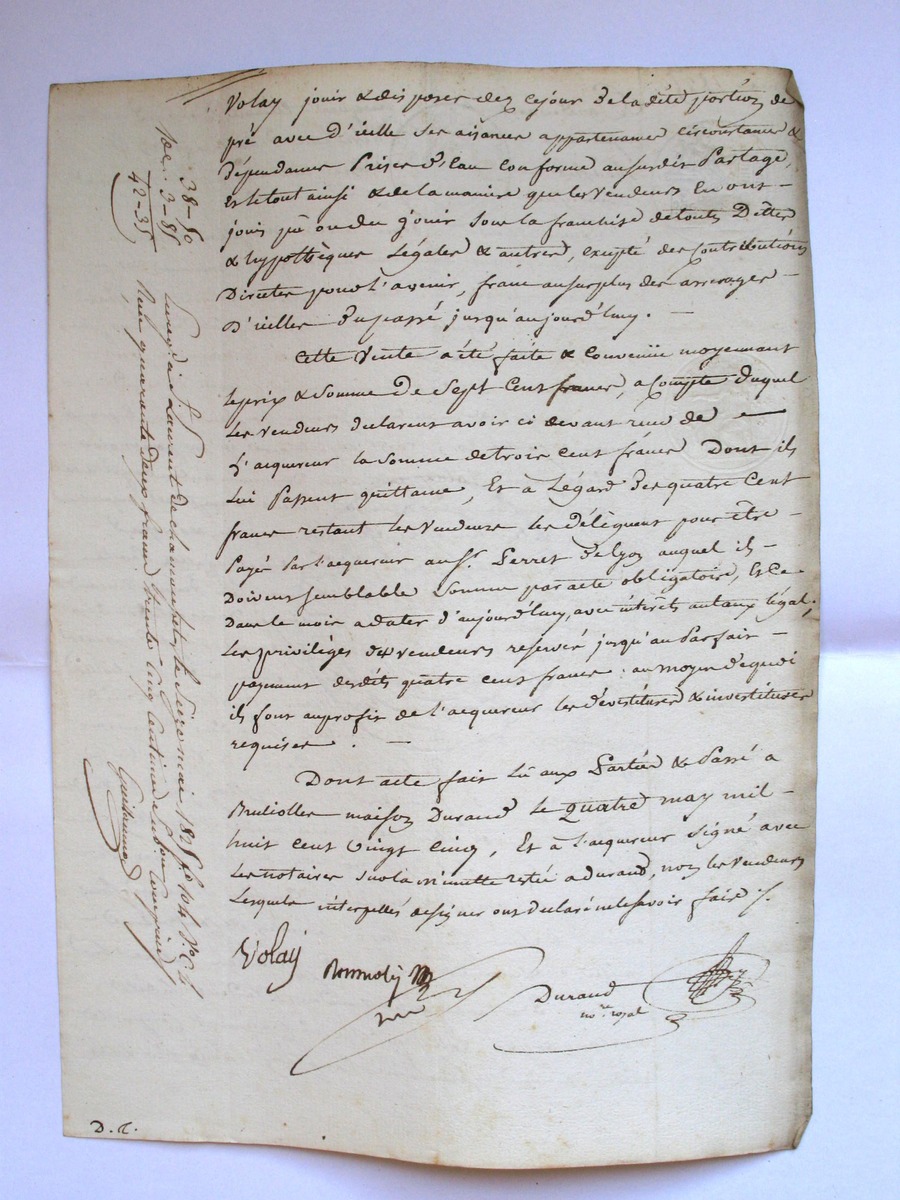 Volay jouir & disposer dez cejour de la dite portion de
pré avec d'icelle ses aisances appartenances circonstances &
dépendances Prises d'Eau conforme au susdit Partage,
Et le tout ainsi & de la maniere que les vendeurs En ont
jouis pû ou du jouir sous la franchise de toutes Dettes
& hypothèques Légales & autres, excepté des Contributions
Directes pour l'avenir, franc au surplus des arrerages
D'icelles Du passé jusqu'aujourd'huy.
Cette Vente a été faite & Convenüe moyennant
le prix & Somme De Sept Cent francs, a Compte duquel
les vendeurs declarent avoir ci devant reçu de
L'acquereur la Somme de trois Cent francs Dont ils
Lui Passent quittance, Et à L'égard des quatre Cent
francs restant les vendeurs les délèguent pour être
Payé par l'acquereur au Sr. Perret de Lyon auquel ils
Doivent semblable Somme par acte obligatoire, Et Ce
Dans le mois a dater d'aujourd'huy, avec intérêts au taux légal,
Les privilèges des vendeurs reservé jusqu'au Parfait
payement desdits quatre Cent francs : au moyen de quoi
ils font au profit de l'acquereur les dévestitures & investitures
requises.
Dont acte fait Lû aux Parties & Passé a
Brullioles maison Durand le quatre may mil
huit Cent vingt Cinq, Et à l'acquereur signé avec
Les notaires sur la minutte restée a durand, non les vendeurs
Lesquels interpellés de signer ont declaré ne le savoir faire ./.
Volay
Durand
nore. royal
D. R.
38-50
3-85
42-35
Enregé. à St Laurent de chamousset le Six mai 1825 fo. 104
Reçu quarante deux francs trente cinq centimes subvon. comprise